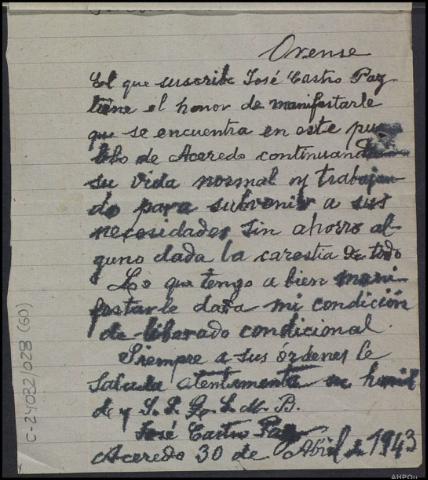 Orense
El que suscribe José Castro Paz
tiene el honor de manifestarle
que se encuentra en este pue
blo de Aceredo continuando
su vida normal y trabajan
do para subvenir a sus
necesidades sin ahorro al
guno dada la carestia de todo
Lo que tengo a bien mani
festarle data mi condición
de liberado condicional.
Siempre a sus órdenes le
saluda atentamente su humil
de y S. S. Q. L. M. B.
José Castro Paz
Aceredo 30 de Abril de 1943
C-24022/028 (60)
AHPOu